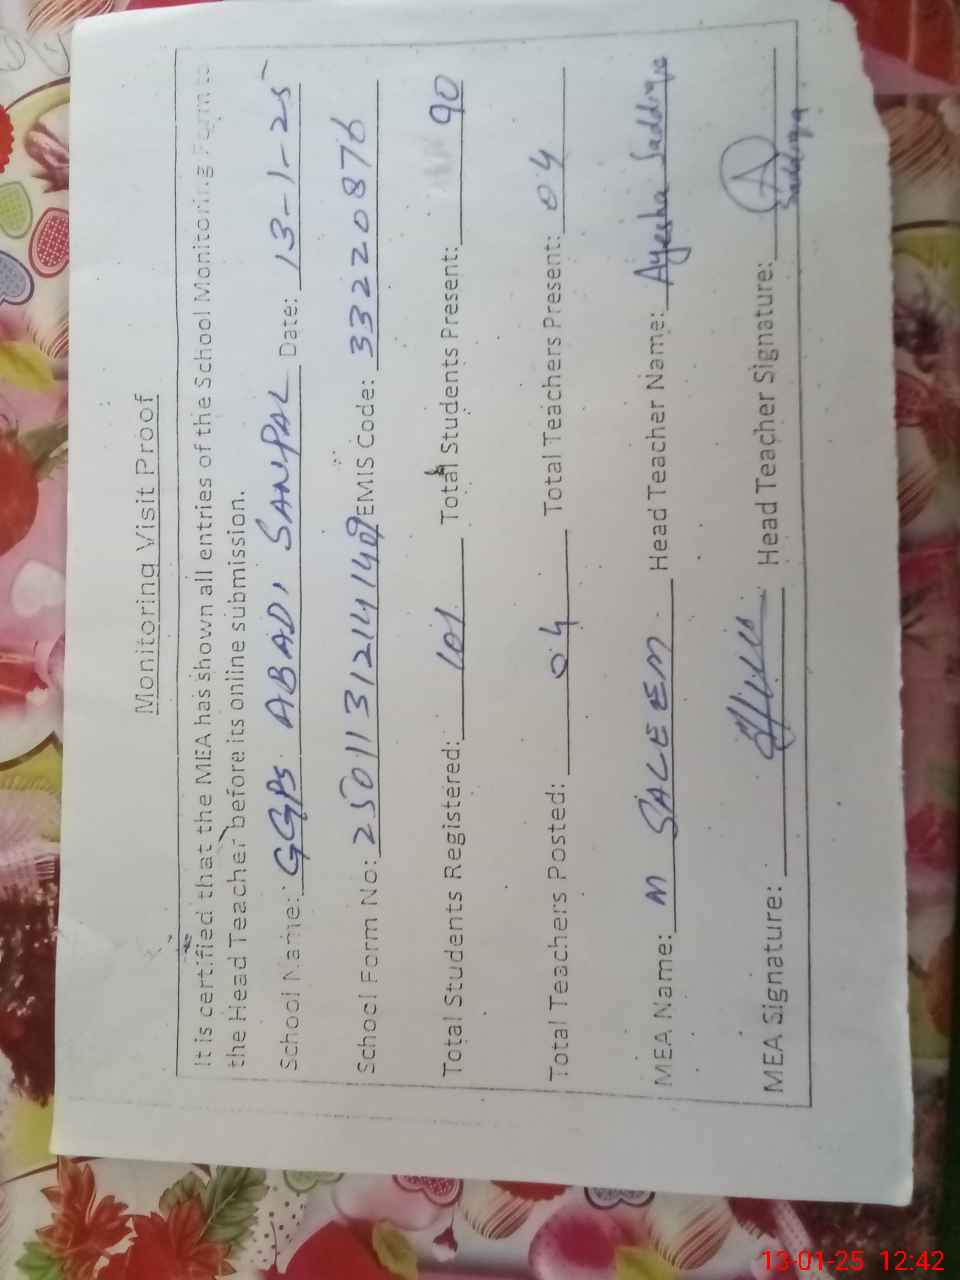 Monitoring Visit Proof
It is certified that the MEA has shown all entries of the School Monitoring Form to
the Head Teacher before its online submission.
School Name: GGPS ABADI SANPAL Date: 13-1-25
School Form No: 2501131214149 EMIS Code: 33220876
Total Students Registered: 101 Total Students Present: 90
Total Teachers Posted: 04 Total Teachers Present: 04
MEA Name: M SALEEM Head Teacher Name: Ayesha Saddiqa
MEA Signature: Head Teacher Signature: A
Saddiqa
13-01-25 12:42